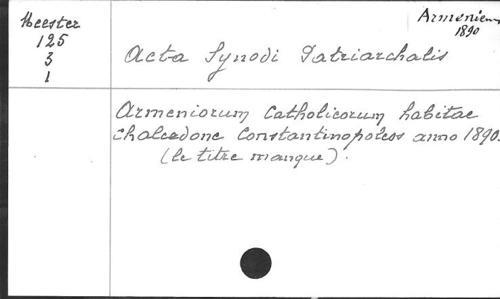 Meester
125
3
1
Armenien
1890
Acta Synodi Patriarchalis
Armeniorum Catholicorum habitae
Chalcedone Constantinopoleos anno 1890.
(le titre manque).